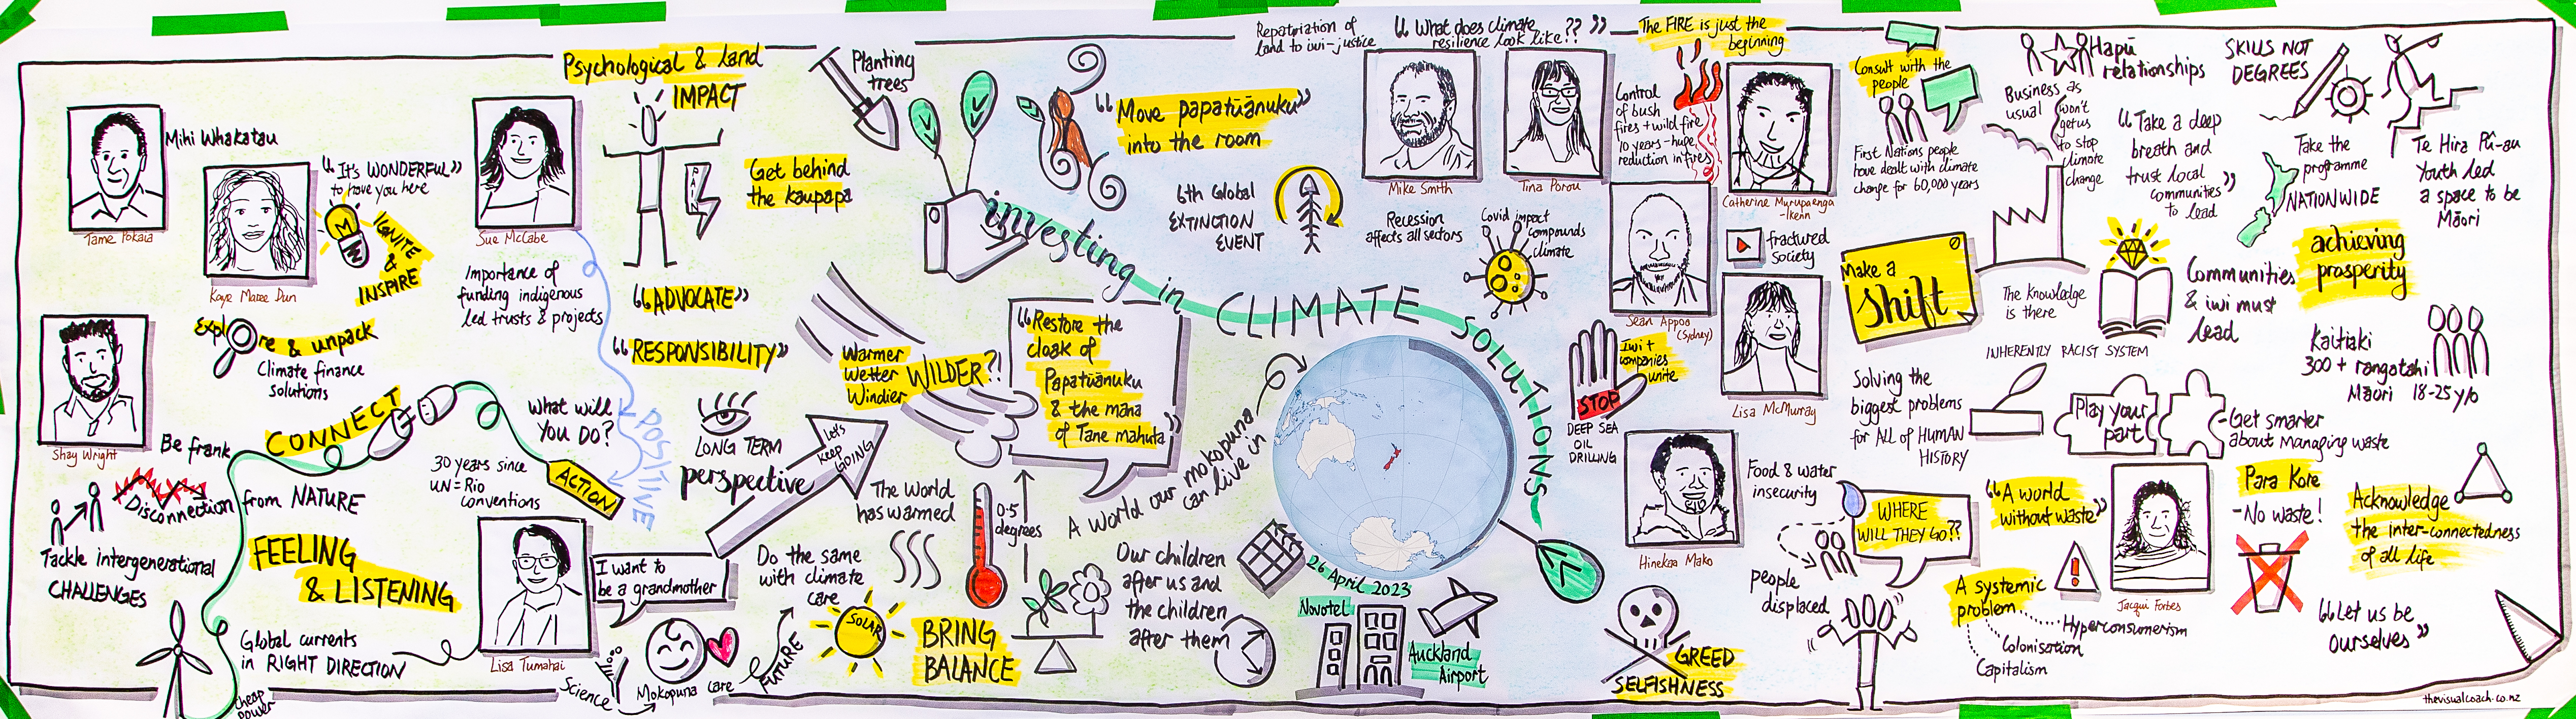 Mihi Whakatau
Tame Pokaia
Kaye Maree Dun
"It's WONDERFUL"
to have you here
IGNITE
&
INSPIRE
Explore & unpack
Climate finance
solutions
Shay Wright
Be frank
CONNECT
Disconnection from NATURE
Tackle intergenerational
CHALLENGES
FEELING
& LISTENING
Global currents
in RIGHT DIRECTION
cheap
power
Sue McCabe
Importance of
funding indigenous
led trusts & projects
What will
you DO?
30 years since
UN = Rio
conventions
ACTION
POSITIVE
Lisa Tumahai
I want to
be a grandmother
Science
Mokopuna care
FUTURE
Psychological & land
IMPACT
Get behind
the kaupapa
"ADVOCATE"
"RESPONSIBILITY"
LONG TERM
perspective
Let's
keep
GOING
Do the same
with climate
care
SOLAR
Planting
trees
Warmer
Wetter
Windier
WILDER?!
The world
has warmed
0.5
degrees
BRING
BALANCE
"Move papatūānuku"
into the room
6th Global
EXTINCTION
EVENT
investing in CLIMATE SOLUTIONS
"Restore the
cloak of
Papatūānuku
& the mana
of Tane mahuta"
A world our mokopuna
can live in
Our children
after us and
the children
after them
26 April 2023
Novotel
Auckland
Airport
Repatriation of
land to iwi-justice
"What does climate
resilience look like??"
Mike Smith
Tina Porou
Recession
affects all sectors
Covid impact
compounds
climate
The FIRE is just the
beginning
Control
of bush
fires + wild fire
10 years-huge
reduction in fires
Catherine Murupaenga
-Ikenn
Sean Appoo
(Sydney)
fractured
Society
Iwi +
companies
unite
STOP
DEEP SEA
OIL
DRILLING
Lisa McMurray
Hinekaa Mako
GREED
SELFISHNESS
Consult with the
people
First Nations people
have dealt with climate
change for 60,000 years
Make a
Shift
Solving the
biggest problems
for ALL of HUMAN
HISTORY
Food & water
insecurity
WHERE
WILL THEY GO??
people
displaced
Hapū
relationships
Business as
usual
won't
get us
to stop
climate
change
"Take a deep
breath and
trust local
communities"
to lead
The knowledge
is there
INHERENTLY RACIST SYSTEM
Play your
part
Get smarter
about managing waste
"A world
without waste"
A systemic
problem...
Hyperconsumerism
Colonisation
Capitalism
Jacqui Forbes
SKILLS NOT
DEGREES
Take the
programme
NATIONWIDE
Te Hira Pū-au
Youth led
a space to be
Māori
achieving
prosperity
Communities
& iwi must
lead
Kaitiaki
300 + rangatahi
Māori 18-25 y/o
Para Kore
- No waste!
Acknowledge
the inter-connectedness
of all life
"Let us be
ourselves"
thevisualcoach.co.nz